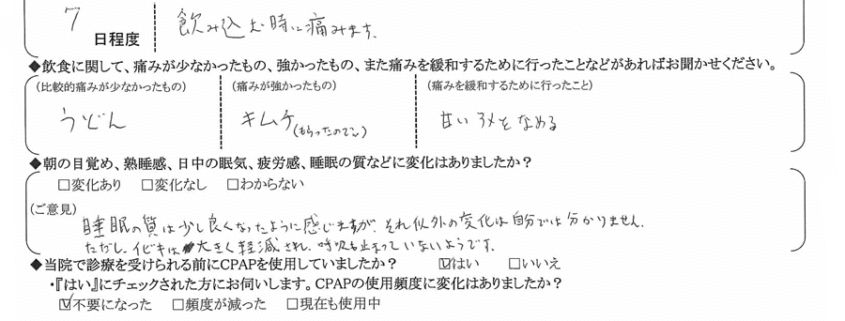 7 日程度 飲み込む時に痛みます。
◆飲食に関して、痛みが少なかったもの、強かったもの、また痛みを緩和するために行ったことなどがあればお聞かせください。
(比較的痛みが少なかったもの) (痛みが強かったもの) (痛みを緩和するために行ったこと)
うどん キムチ(もらったので) 甘いアメをなめる
◆朝の目覚め、熟睡感、日中の眠気、疲労感、睡眠の質などに変化はありましたか?
□変化あり □変化なし □わからない
(ご意見)
睡眠の質は少し良くなったように感じますが、それ以外の変化は自分では分かりません。
ただし、イビキは大きく軽減され、呼吸も止まっていないようです。
◆当院で診療を受けられる前にCPAPを使用していましたか? ☑はい □いいえ
・『はい』にチェックされた方にお伺いします。CPAPの使用頻度に変化はありましたか?
☑不要になった □頻度が減った □現在も使用中